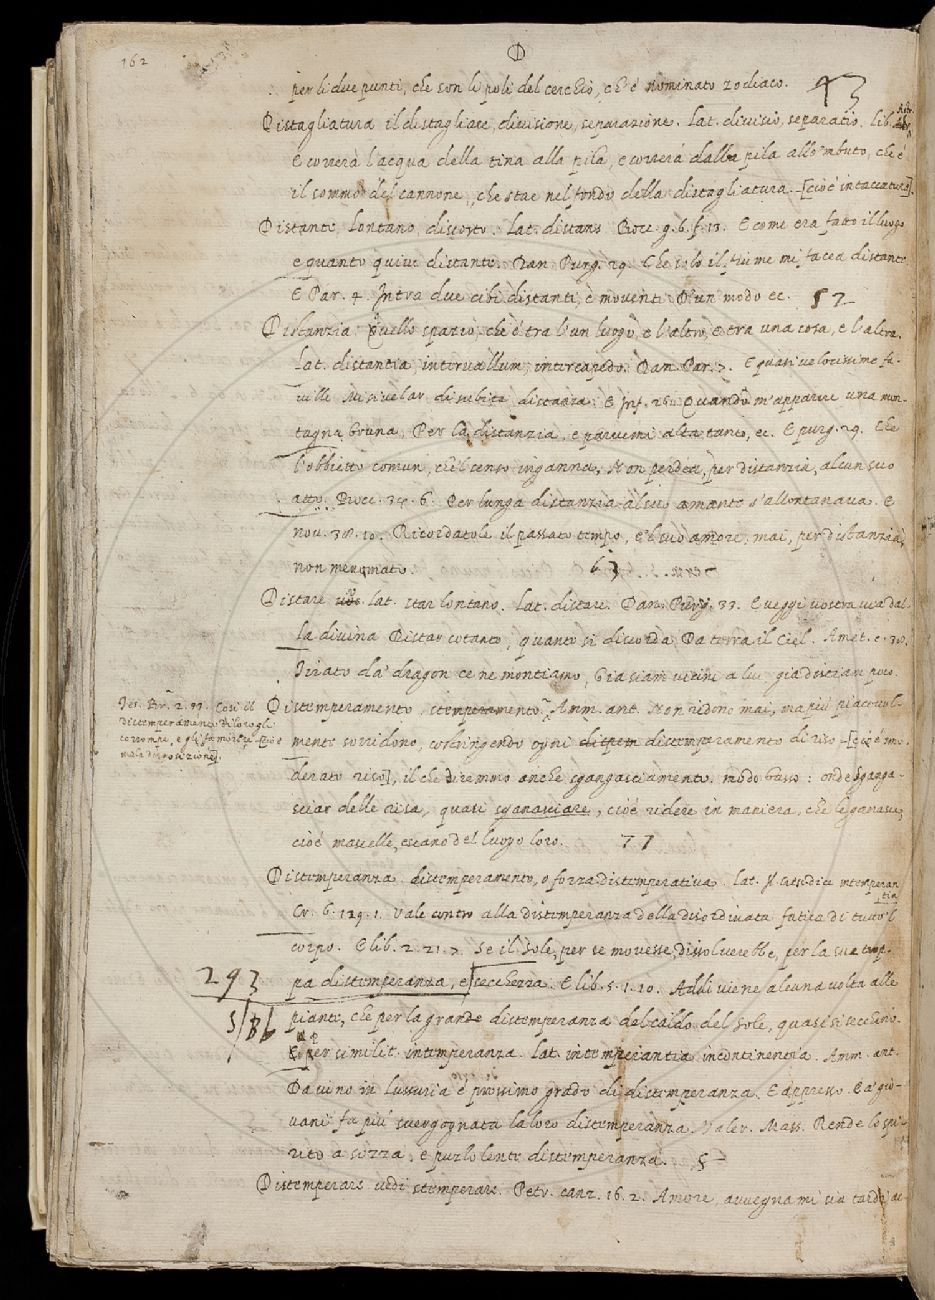 162
D
per li due punti, che son li poli del cerchio, ch'è nominato zodiaco. 43
Distagliatura il distagliare, divisione, separazione. Lat. divisio, separatio. lib.
E correrà l'acqua della tina alla pila, e correrà dalla pila allo 'mbuto, che è
il sommo del cannone, che stae nel fondo della distagliatura [cioè intaccatura].
Distante, lontano, discosto. Lat. distans. Bocc. g. 6. f. 13. E come era fatto il luogo,
e quanto quivi distante. Dan. Purg. 29. Che solo il fiume mi facea distante
E Par. 4. Intra due cibi distanti, e moventi D'un modo ec. 57
Distanzia. Quello spazio, che è tra l'un luogo, e l'altro, e tra una cosa, e l'altra.
Lat. distantia, intervallum, intercapedo. Dan. Par. 7. E quasi velocissime fa-
ville Mi si velar di subita distanza. E Inf. 26. Quando m'apparve una mon-
tagna bruna, Per la distanzia, e parvemi alta tanto, ec. E purg. 29. Che
l'obbietto comun, che 'l senso inganna, Non perdea, per distanzia, alcun suo
atto. Bocc. 6. Per lunga distanzia al suo amante s'allontanava. E
nov. 38. 10. Ricordatole il passato tempo, e 'l suo amore, mai, per distanzia,
non menomato. 63
Distare lat. star lontano. Lat. distare. Dan. Purg. 33. E veggi vostra via dal-
la divina Distar cotanto, quanto si discorda Da terra il Ciel. Amet. c.
Tirato da' dragon ce ne montiamo, Già siam vicini a lui già distiam poco.
Tes. Br. 2. Così il
distemperamento di loro gli
corrompe, e gli fa morire [cioè
mala disposizione].
Distemperamento, stemperamento. Amm. ant. Non ridono mai, ma più piacevol-
mente sorridono, costringendo ogni distem distemperamento di riso [cioè smo-
derato riso], il che diremmo anche sgangasciamento. modo basso: onde Sganga-
sciar delle risa, quasi sganasciare, cioè ridere in maniera, che le ganasce,
cioè mascelle, escano del luogo loro. 77
Distemperanza. distemperamento, o forza distemperativa. Lat. intemperan
tia
Cr. 6. 129. 1. Vale contro alla distemperanza della disordinata fatica di tutto 'l
corpo. E lib. 2. 21. 7. Se il Sole, per se movesse, dissolverebbe, per la sua temp-
293
ra distemperanza, e secchezza. E lib. 5. 1. 10. Addiviene alcuna volta alle
piante, che per la grande distemperanza del caldo del Sole, quasi si secchino.
E per similit. intemperanza. Lat. intemperantia incontinentia. Amm. ant.
Da vino in lussuria è prossimo grado di distemperanza. E appresso. Ea' gio-
vani fa più svergognata la loro distemperanza. Valer. Mass. Rende lo spi-
rito a sozza, e puzzolente distemperanza. 5
Distemperare vedi stemperare. Petr. canz. 16. 2. Amore, avvegna mi sia tardi ac-